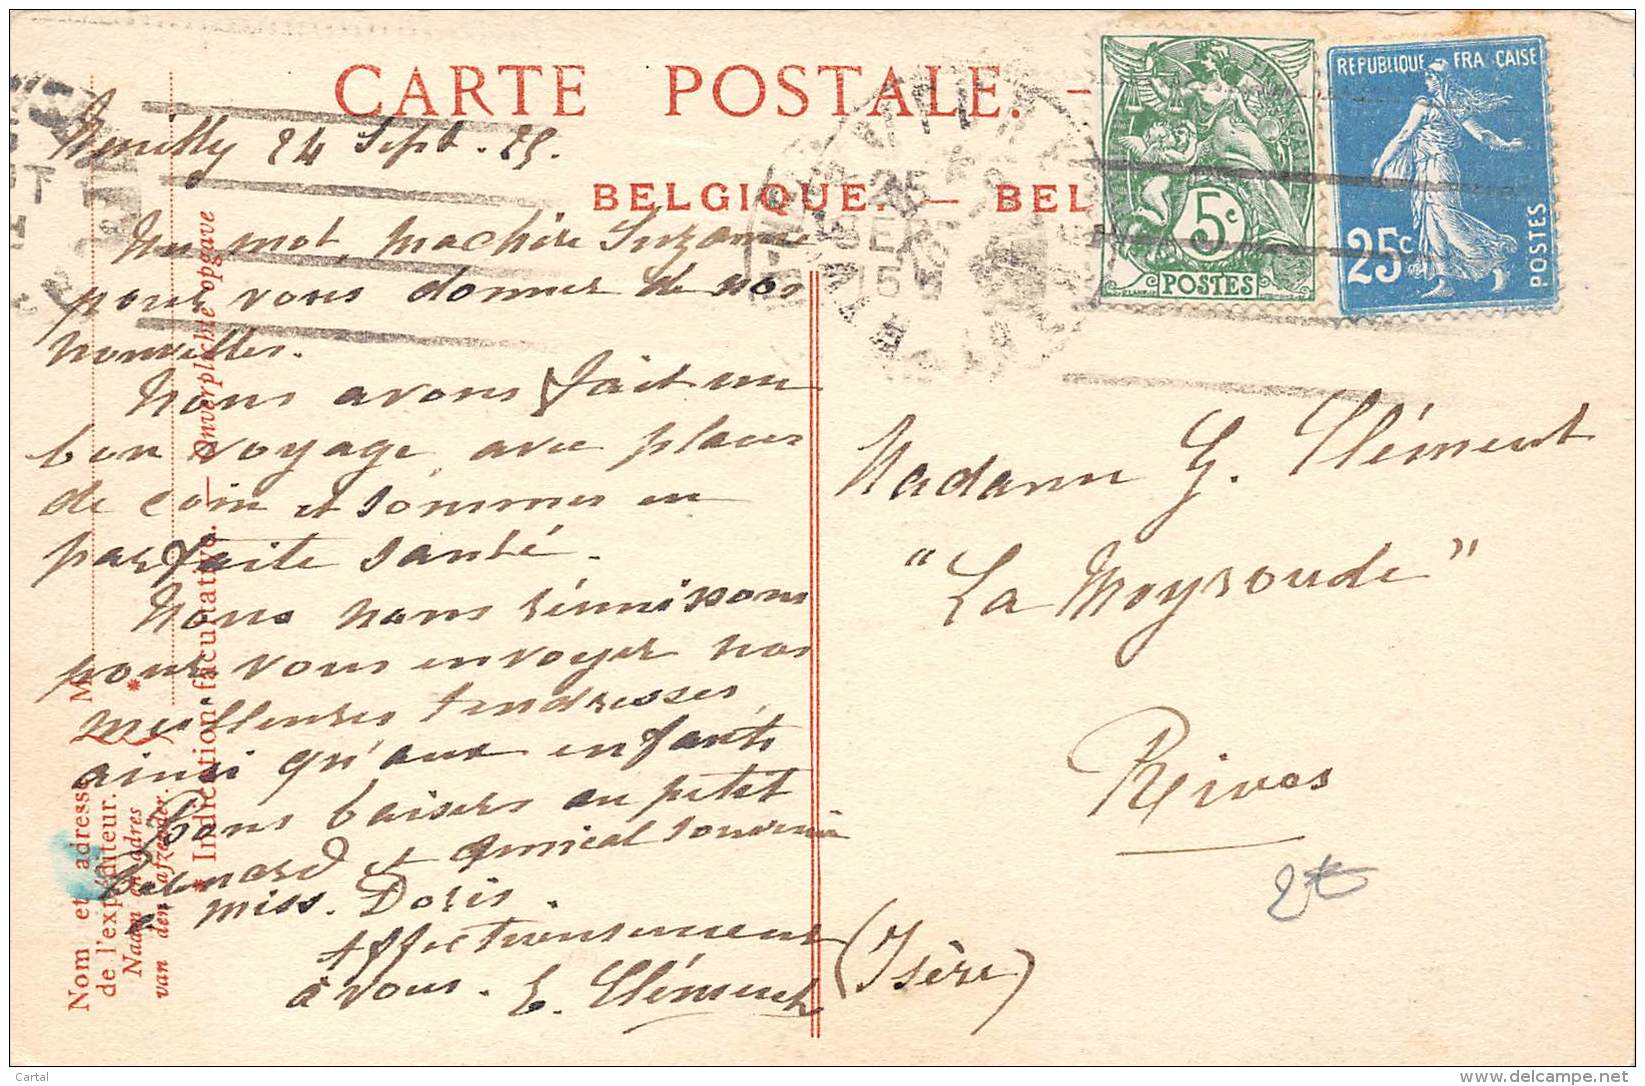 CARTE POSTALE. —
BELGIQUE. — BEL
Neuilly 24 Sept. 25.
Un mot, ma chère Suzanne
pour vous donner de nos
nouvelles.
Nous avons fait un
bon voyage, avec places
de coin et sommes en
parfaite santé.
Nous nous réunissons
pour vous envoyer nos
meilleures tendresses
ainsi qu'aux enfants
Bons baisers au petit
Bernard et amical souvenir
à miss. Doris.
Affectueusement
à vous. E. Clément
Madame G. Clément
"La Moyroude"
Rives
(Isère)
2€
5c
POSTES
REPUBLIQUE FRANCAISE
25c
POSTES
25
SEPT
15
Nom et adresse M
de l'expéditeur.
Naam en adres
van den afzender.
* Indication facultative. — Onverplichte opgave
Cartal
delcampe.net